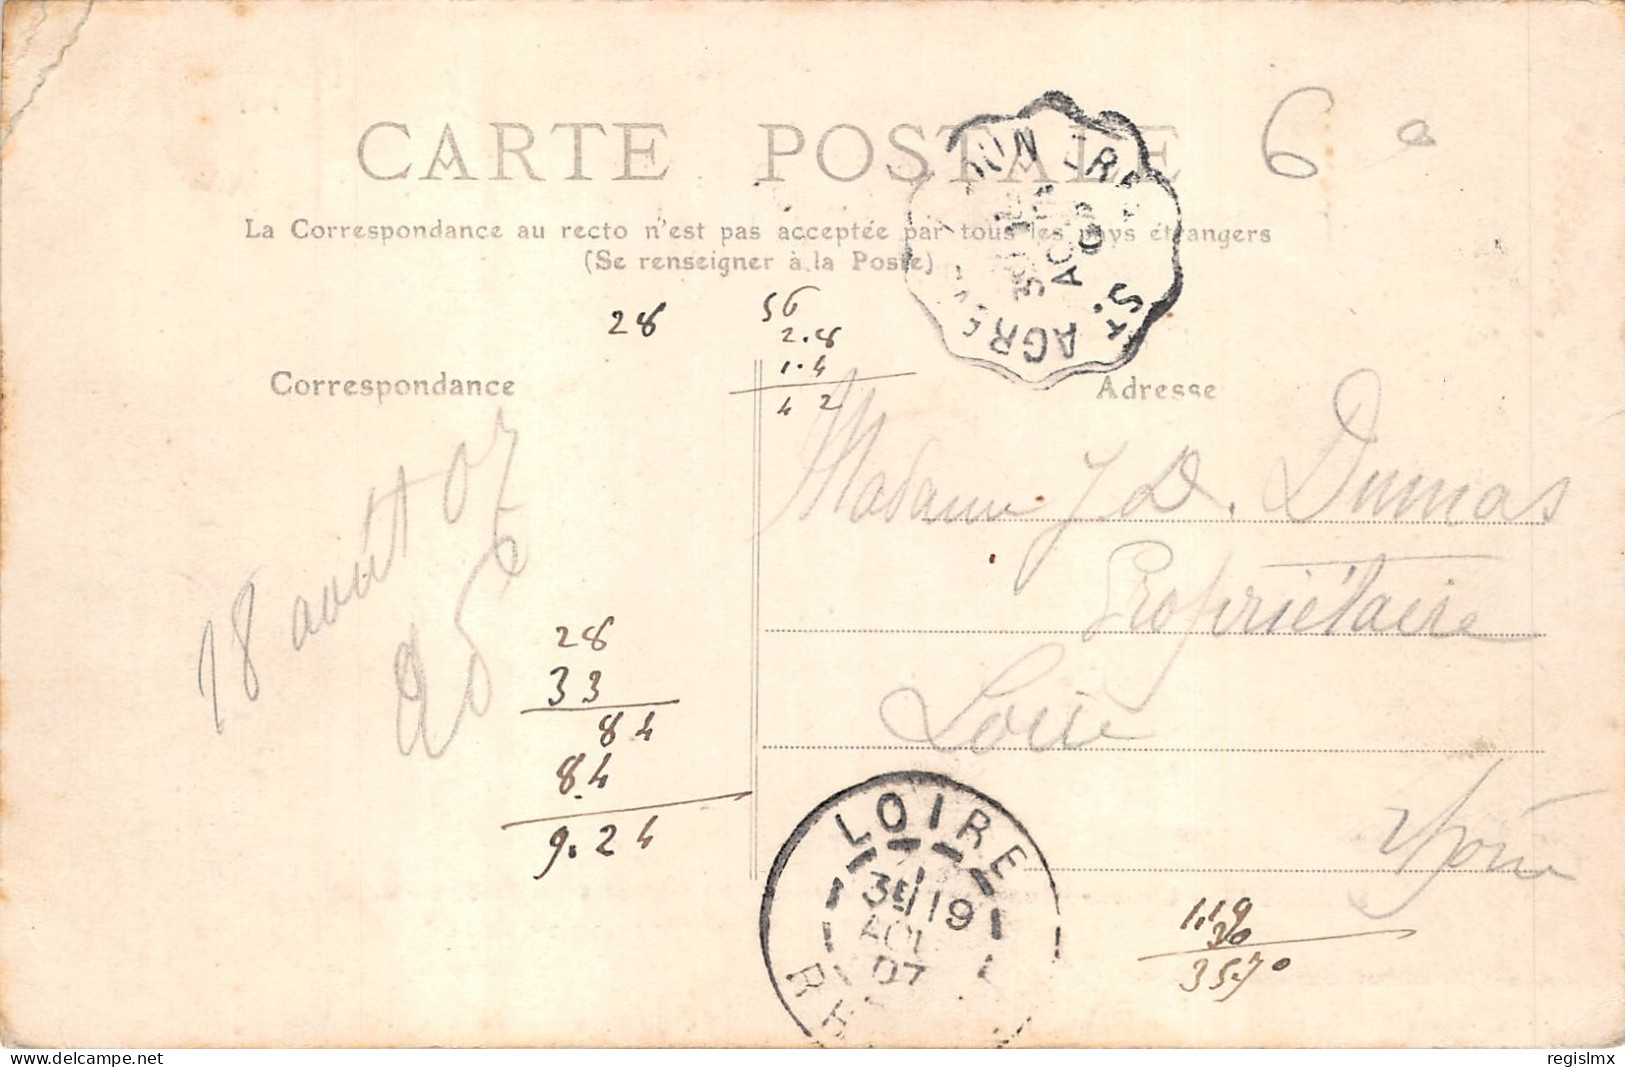 CARTE POSTALE
6
La Correspondance au recto n'est pas acceptée par tous les pays étrangers
(Se renseigner à la Poste)
28
56
2.8
1.4
4 2
Correspondance
Adresse
18 août 07
Madame J D. Dumas
Propriétaire
Loire
Rhône
28
33
84
84
9.24
LOIRE
3E/19
AOU
07
RH
1.19
30
35.70
regislmx
delcampe.net